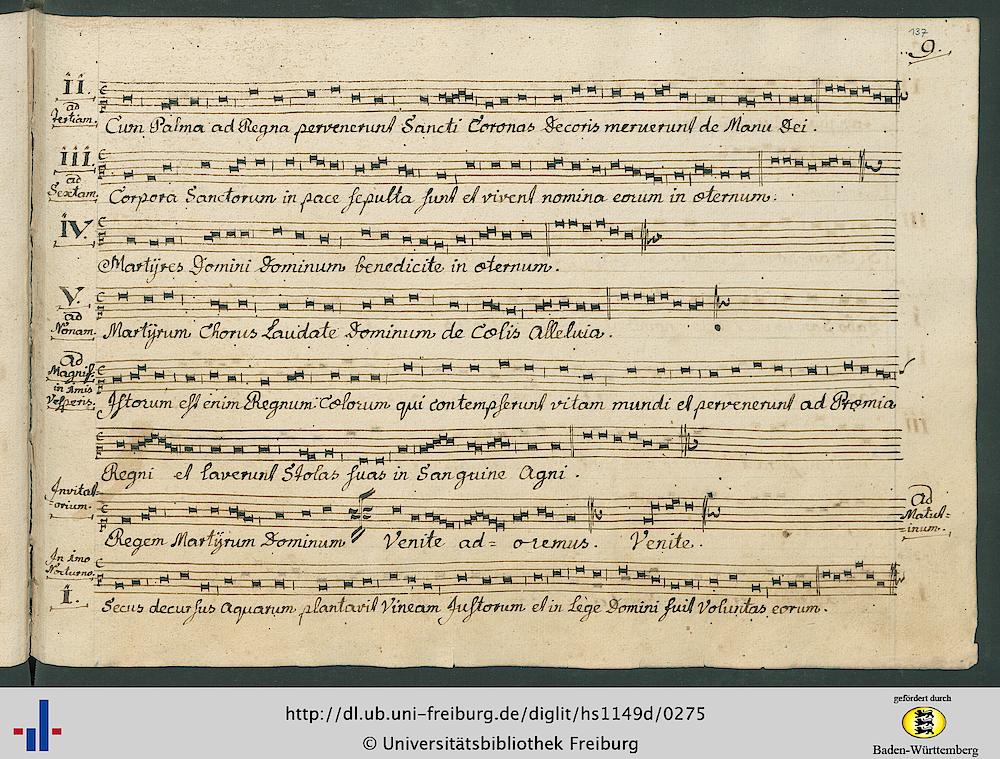 137
9.
ii.
ad
Tertiam.
Cum Palma ad Regna pervenerunt Sancti Coronas Decoris meruerunt de Manu Dei.
iii.
ad
Sextam.
Corpora Sanctorum in pace sepulta sunt et vivent nomina eorum in æternum.
iv.
Martÿres Domini Dominum benedicite in æternum.
V.
ad
Nonam.
Martÿrum Chorus Laudate Dominum de Cœlis Alleluia.
Ad
Magnif:
in 2mis
Vesperis.
Istorum est enim Regnum Cœlorum qui contempserunt vitam mundi et pervenerunt ad Præmia
Regni et laverunt Stolas suas in Sanguine Agni.
Invitat-
orium.
Regem Martÿrum Dominum Venite ad= oremus. Venite.
ad
Matut=
inum.
In 1mo
Nocturno.
I.
Secus decursus aquarum plantavit Vineam Justorum et in Lege Domini fuit Voluntas eorum.
http://dl.ub.uni-freiburg.de/diglit/hs1149d/0275
© Universitätsbibliothek Freiburg
gefördert durch
Baden-Württemberg